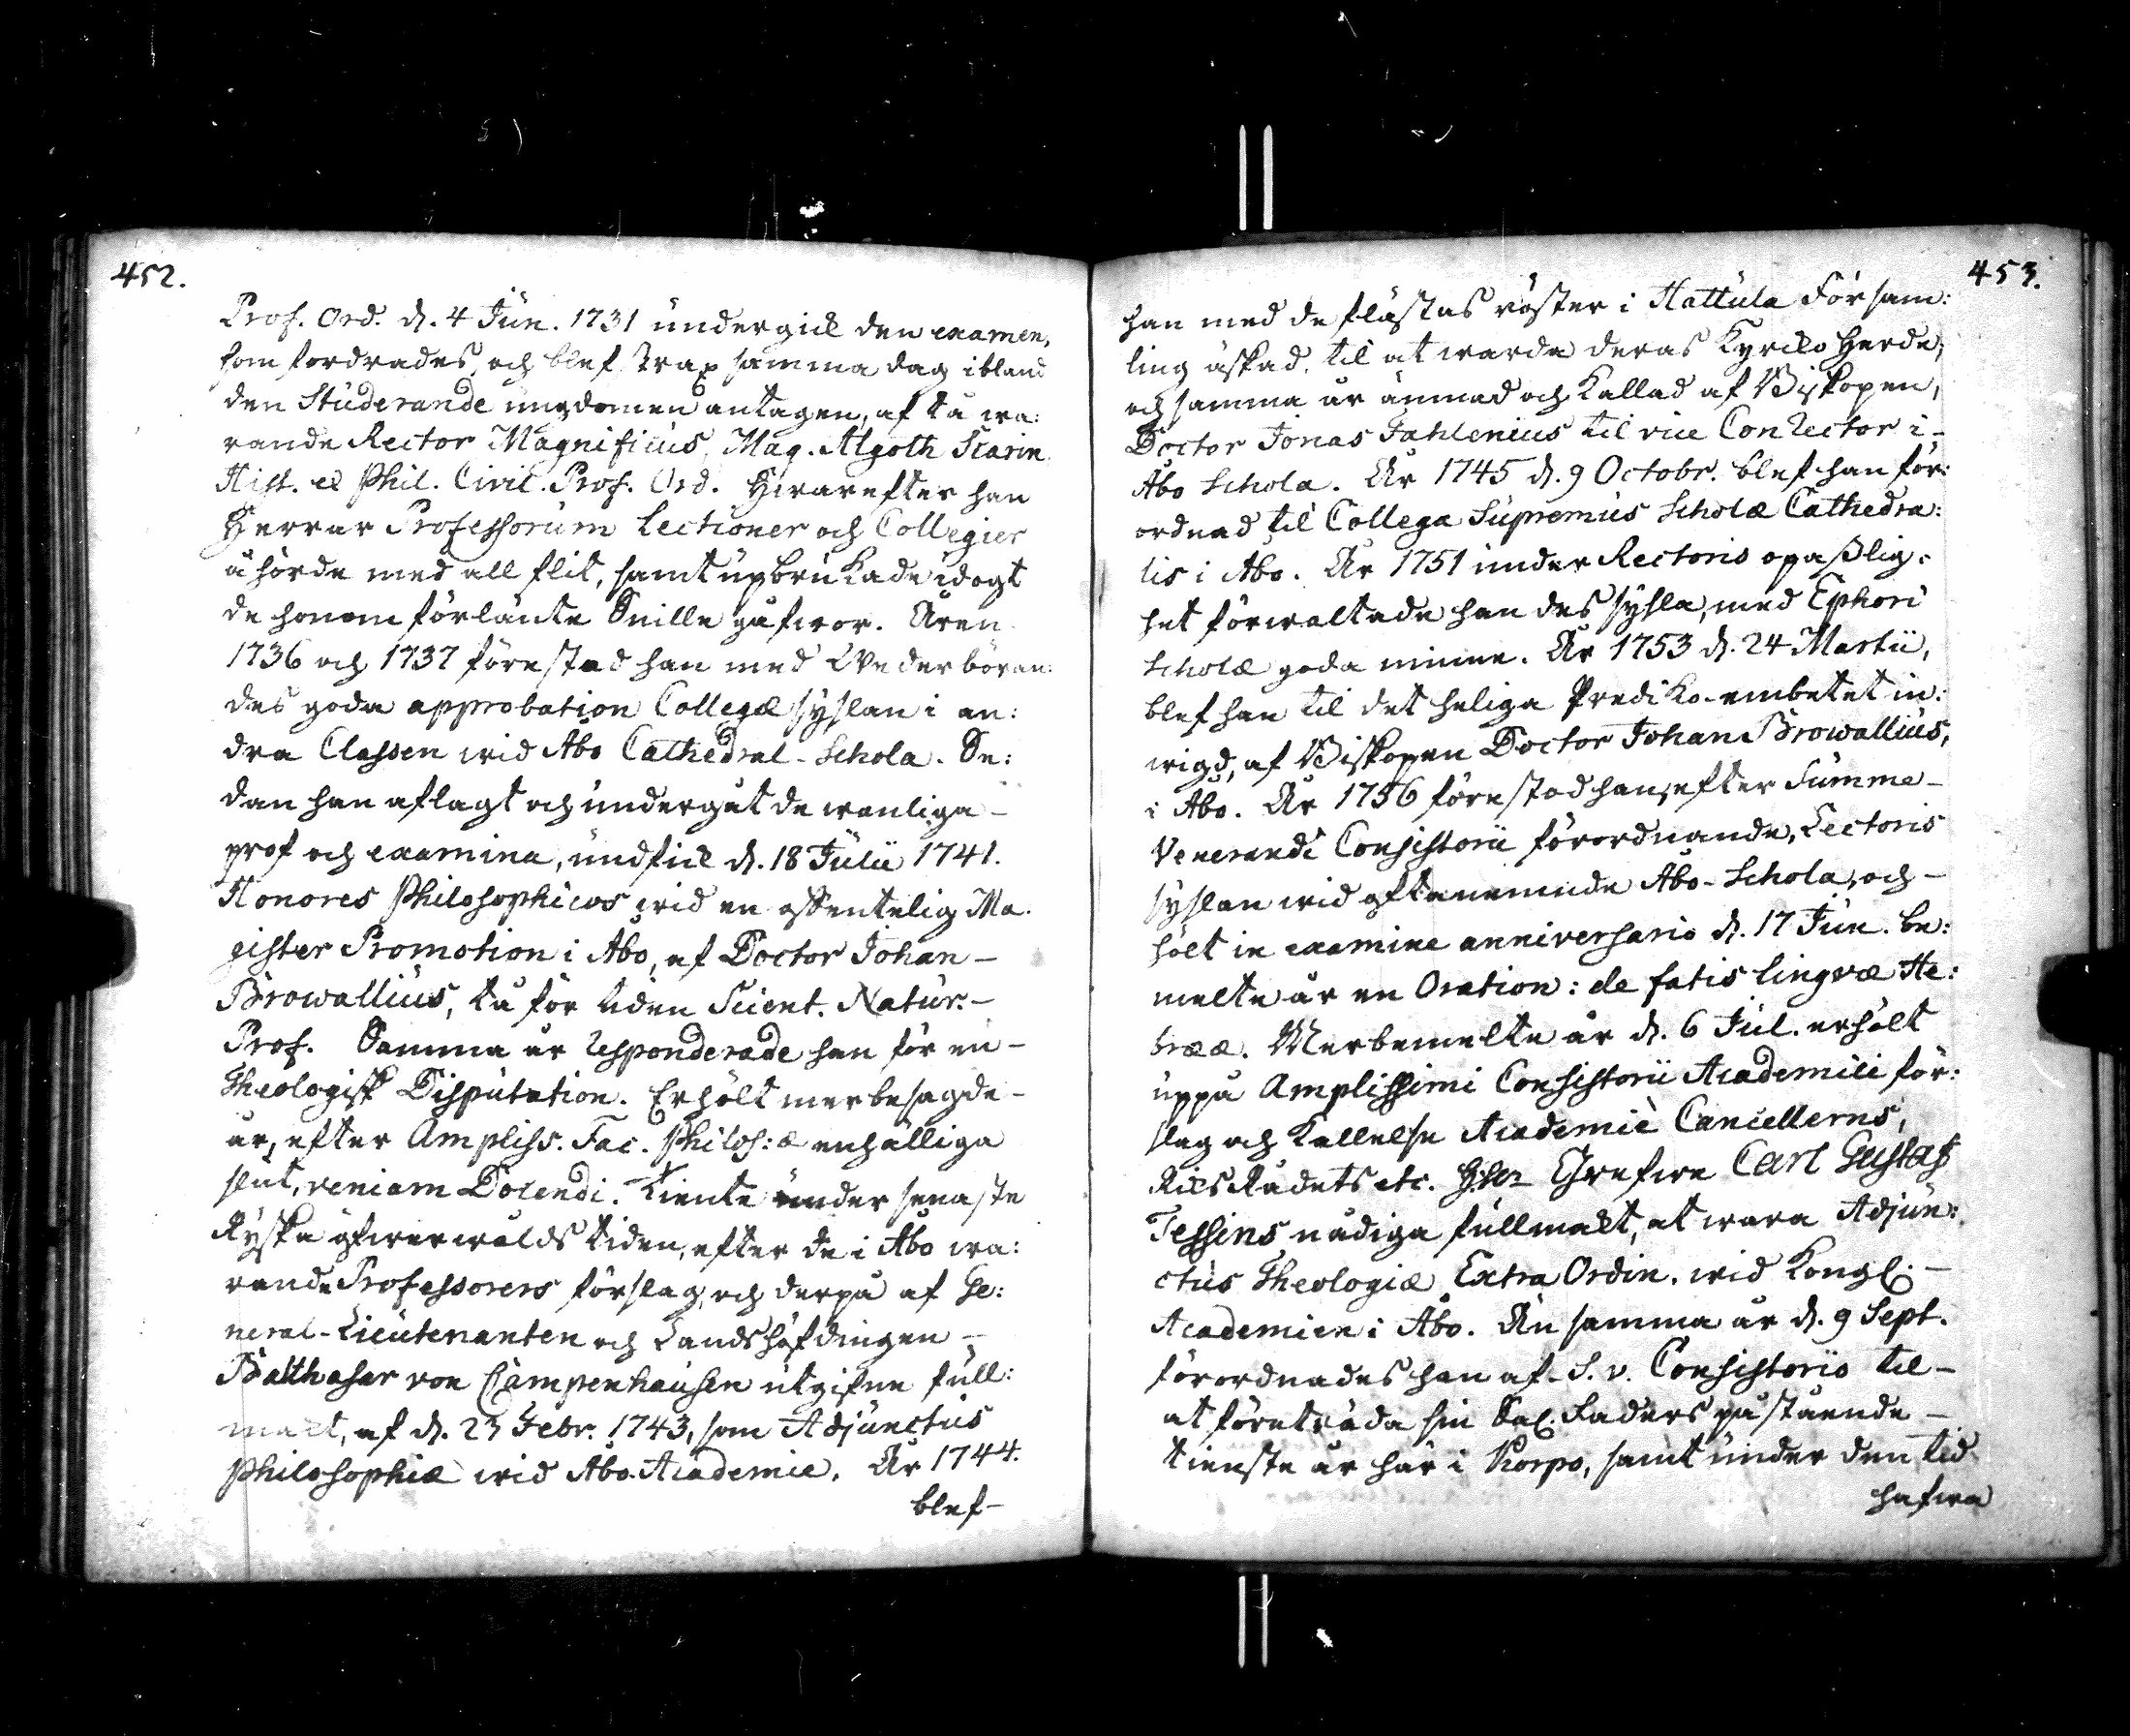 452.
Prof. Ord. d. 4 Jun. 1731 undergick den examen,
som fordrades, och blef strax samma dag ibland
den Studerande ungdomen antagen, af tå wa:
rande Rector Magnificus, Mag. Algoth Scarin
Hist. et Phil. Civil. Prof. Ord. Hwarefter han
Herrar Professorum Lectioner och Collegier
åhörde med all flit, samt upbrukade idogt
de honom förlänte Snille gåfwor. Åren
1736 och 1737 förestod han med Wederböran:
des goda approbation Collegæ syslan i an:
dra Classen wid Åbo Cathedral-Schola. Se:
dan han aflagt och undergåt de wanliga -
prof och examina, undfick d. 18 Julii 1741.
Honores Philosophicos wid en offentelig Ma.
gister Promotion i Åbo, af Doctor Johan -
Browallius, tå för tiden Scient. Natur. -
Prof. Samma år responderade han för en -
Theologisk Disputation. Erhölt merbesagde -
år, efter Ampliss. Fac. Philos:æ enhälliga
slut, veniam Docendi. Tiente under senaste
Ryska öfwerwålds tiden, efter de i Åbo wa:
rande Professorers förslag, och derpå af Ge:
neral-Lieutenanten och Landshöfdingen -
Balthasar von Campenhausen utgifne full:
mact, af d. 23 Febr. 1743, som Adjunctus
Philosophiæ wid Åbo Academie. År 1744.
blef -
453.
han med de flästas röster i Hattula Försam:
ling äskad, til at warda deras Kyrcko Herde,
och samma år ämnad och Kallad af Biskopen,
Doctor Jonas Fahlenius til vice ConRector i -
Åbo Schola. År 1745 d. 9 Octobr. blef han för:
ordnad til Collega Supremus Scholæ Cathedra:
lis i Åbo. År 1751 under Rectoris opaßlig:
het förwaltade han des sysla, med Ephori
Scholæ goda minne. År 1753 d. 24 Martii,
blef han til det heliga Prediko-embetet in:
wigd, af Biskopen Doctor Johan Browallius,
i Åbo. År 1756 förestod han, efter Summe -
Venerandi Consistorii förordnande, Lectoris
syslan wid oftanemnde Åbo-Schola, och -
hölt in examine anniversario d. 17 Jun. be:
melte år en Oration: de fatis lingvæ He:
brææ. Merbemelte år d. 6 Jul. erhölt
uppå Amplissimi Consistorii Academici för:
slag och Kallelse Academiè Cancellerns,
RicksRådets etc. Grefwe Carl Gustaf
Tessins nådiga fullmackt, at wara Adjun:
ctus Theologiæ Extra Ordin. wid Kongl. -
Academien i Åbo. Än samma år d. 9 Sept.
förordnades han af S. v. Consistorio til -
at företräda sin Sal. Faders påstående -
tienste år här i Korpo, samt under den tid
hafwa